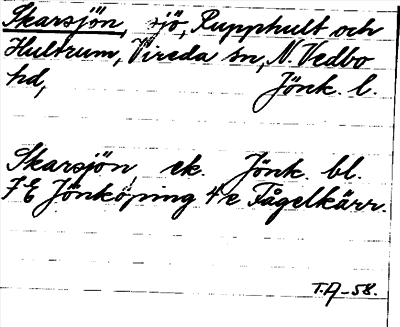 Skarsjön, sjö, Rupphult och
Hultrum, Vireda sn, N. Vedbo
hd, Jönk. l.
Skarsjön ek. Jönk. bl.
7E Jönköping 4e Fågelkärr.
T.A-58.